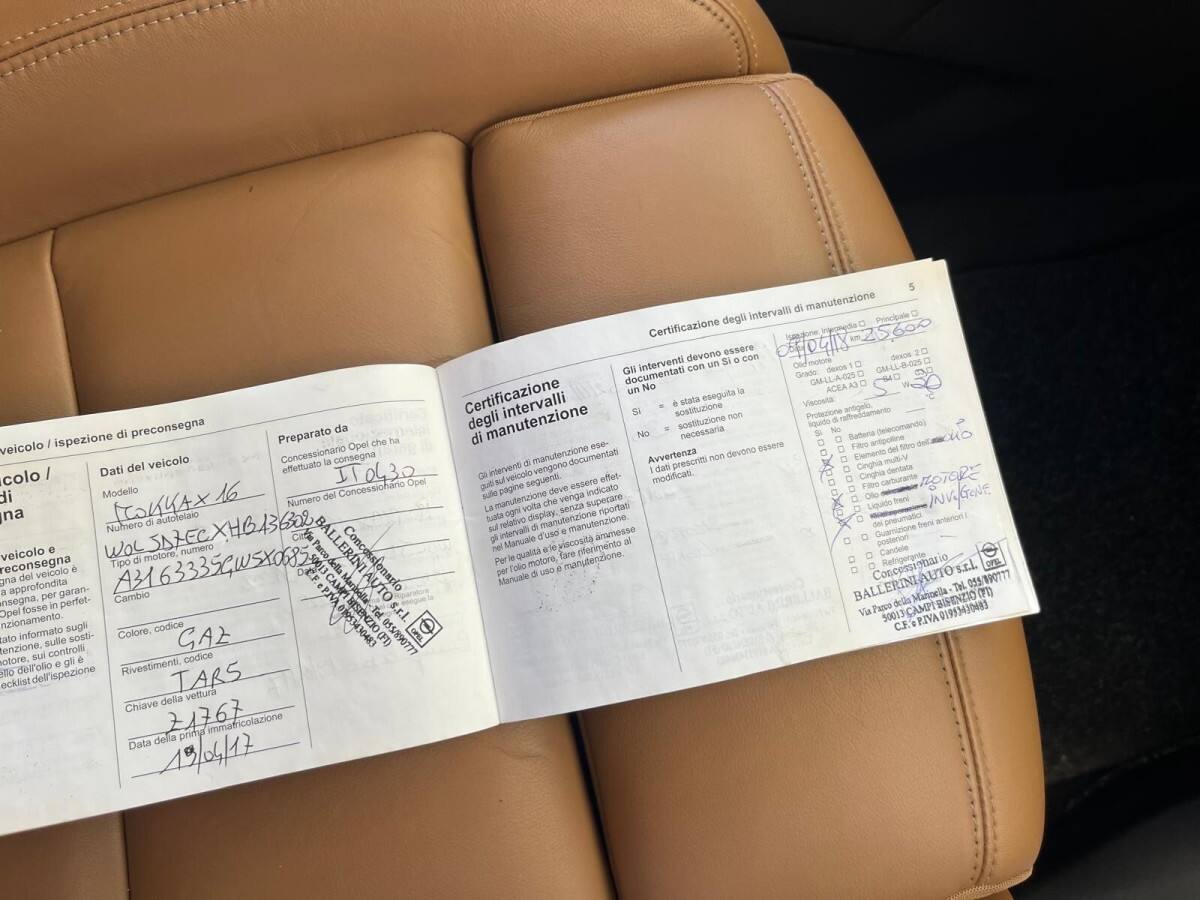 veicolo / ispezione di preconsegna
icolo /
di
gna
veicolo e
preconsegna
gna del veicolo è
a approfondita
nsegna, per garan-
Opel fosse in perfet-
nzionamento.
tato informato sugli
tenzione, sulle sosti-
otore, sui controlli
ello dell'olio e gli è
ecklist dell'ispezione
Dati del veicolo
Modello
MOKKA X 16
Numero di autotelaio
Tipo di motore, numero
Cambio
Colore, codice
GAZ
Rivestimenti, codice
TAR5
Chiave della vettura
Z1767
Data della prima immatricolazione
19/04/17
Preparato da
Concessionario Opel che ha
effettuato la consegna
IT0430
Numero del Concessionario Opel
Concessionario
BALLERINI AUTO s.r.l.
Via Parco della Marinella - Tel. 055/890777
50013 CAMPI BISENZIO (FI)
C.F. e P.IVA 01953430483
OPEL
Certificazione degli intervalli di manutenzione
5
Certificazione
degli intervalli
di manutenzione
Gli interventi di manutenzione ese-
guiti sul veicolo vengono documentati
sulle pagine seguenti.
La manutenzione deve essere effet-
tuata ogni volta che venga indicato
sul relativo display, senza superare
gli intervalli di manutenzione riportati
nel Manuale d'uso e manutenzione.
Per le qualità e le viscosità ammesse
per l'olio motore, fare riferimento al
Manuale di uso e manutenzione.
Gli interventi devono essere
documentati con un Sì o con
un No
Sì = è stata eseguita la
sostituzione
No = sostituzione non
necessaria
Avvertenza
I dati prescritti non devono essere
modificati.
Ispezione, Intermedia Principale
04/18 km 25.600
Olio motore
Grado: dexos 1 dexos 2
GM-LL-A-025 GM-LL-B-025
ACEA A3 B4 C3
Viscosità: 5 W 30
Protezione antigelo,
liquido di raffreddamento °C
Sì No
Batteria (telecomando)
Filtro antipolline
Elemento del filtro dell' olio
Cinghia multi-V
Cinghia dentata
Filtro carburante
Olio MOTORE
Liquido freni INV./GENE.
dei pneumatici
Guarnizione freni anteriori /
posteriori
Candele
Refrigerante
Concessionario
BALLERINI AUTO s.r.l.
Via Parco della Marinella - Tel. 055/890777
50013 CAMPI BISENZIO (FI)
C.F. e P.IVA 01953430483
OPEL